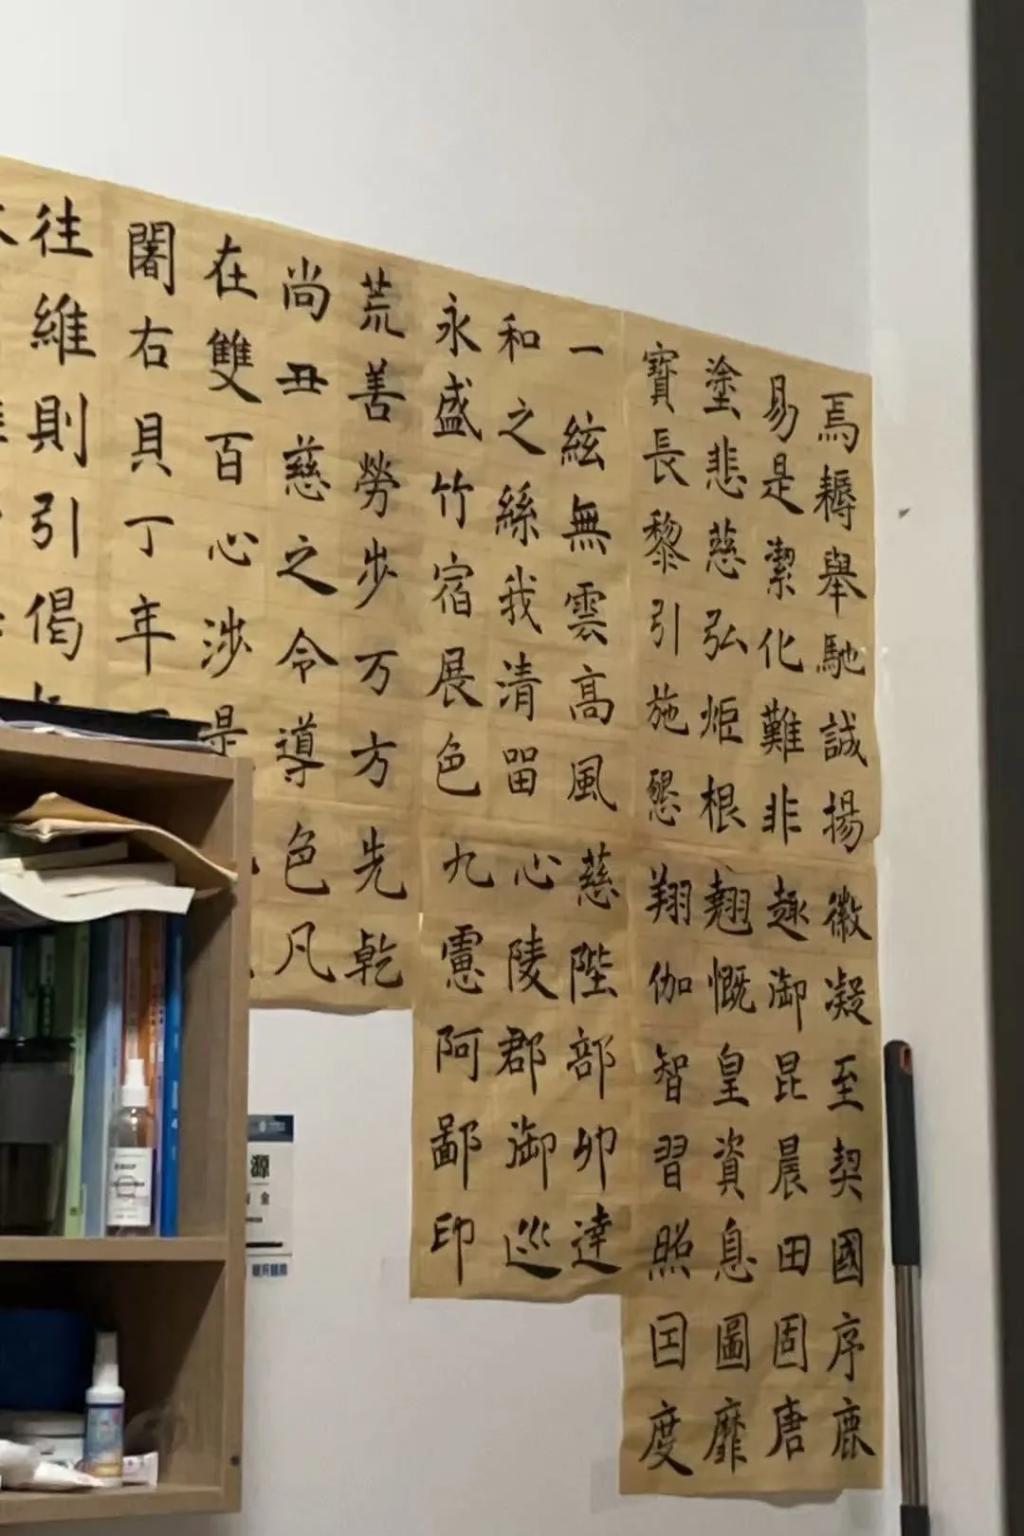 焉耨舉馳誠揚徽凝至契國序鹿
易是潔化難非趣御昆晨田固唐
塗悲慈弘炬根翹慨皇資息圖靡
寶長黎引施懇翔伽智習照因度
一絃無雲高風慈陛部卯達
和之絲我清留心陵郡御巡
永盛竹宿展色九憲阿鄙印
荒善勞步万方先乾
尚丑慈之令導色凡
在雙百心涉是
闍右貝丁年
往維則引偈
源